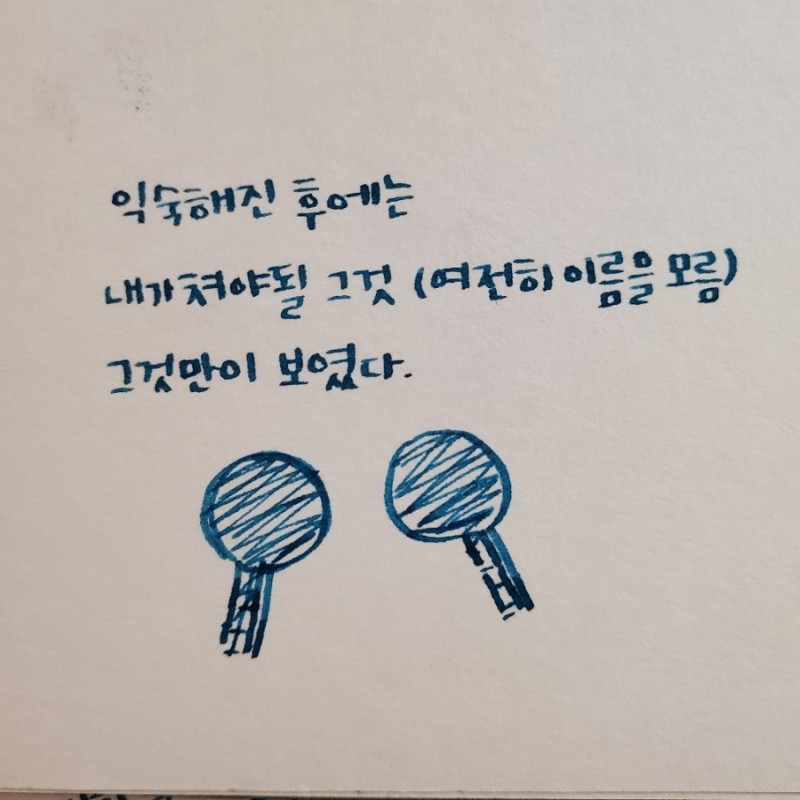 익숙해진 후에는
내가 쳐야될 그것 (여전히 이름을 모름)
그것만이 보였다.